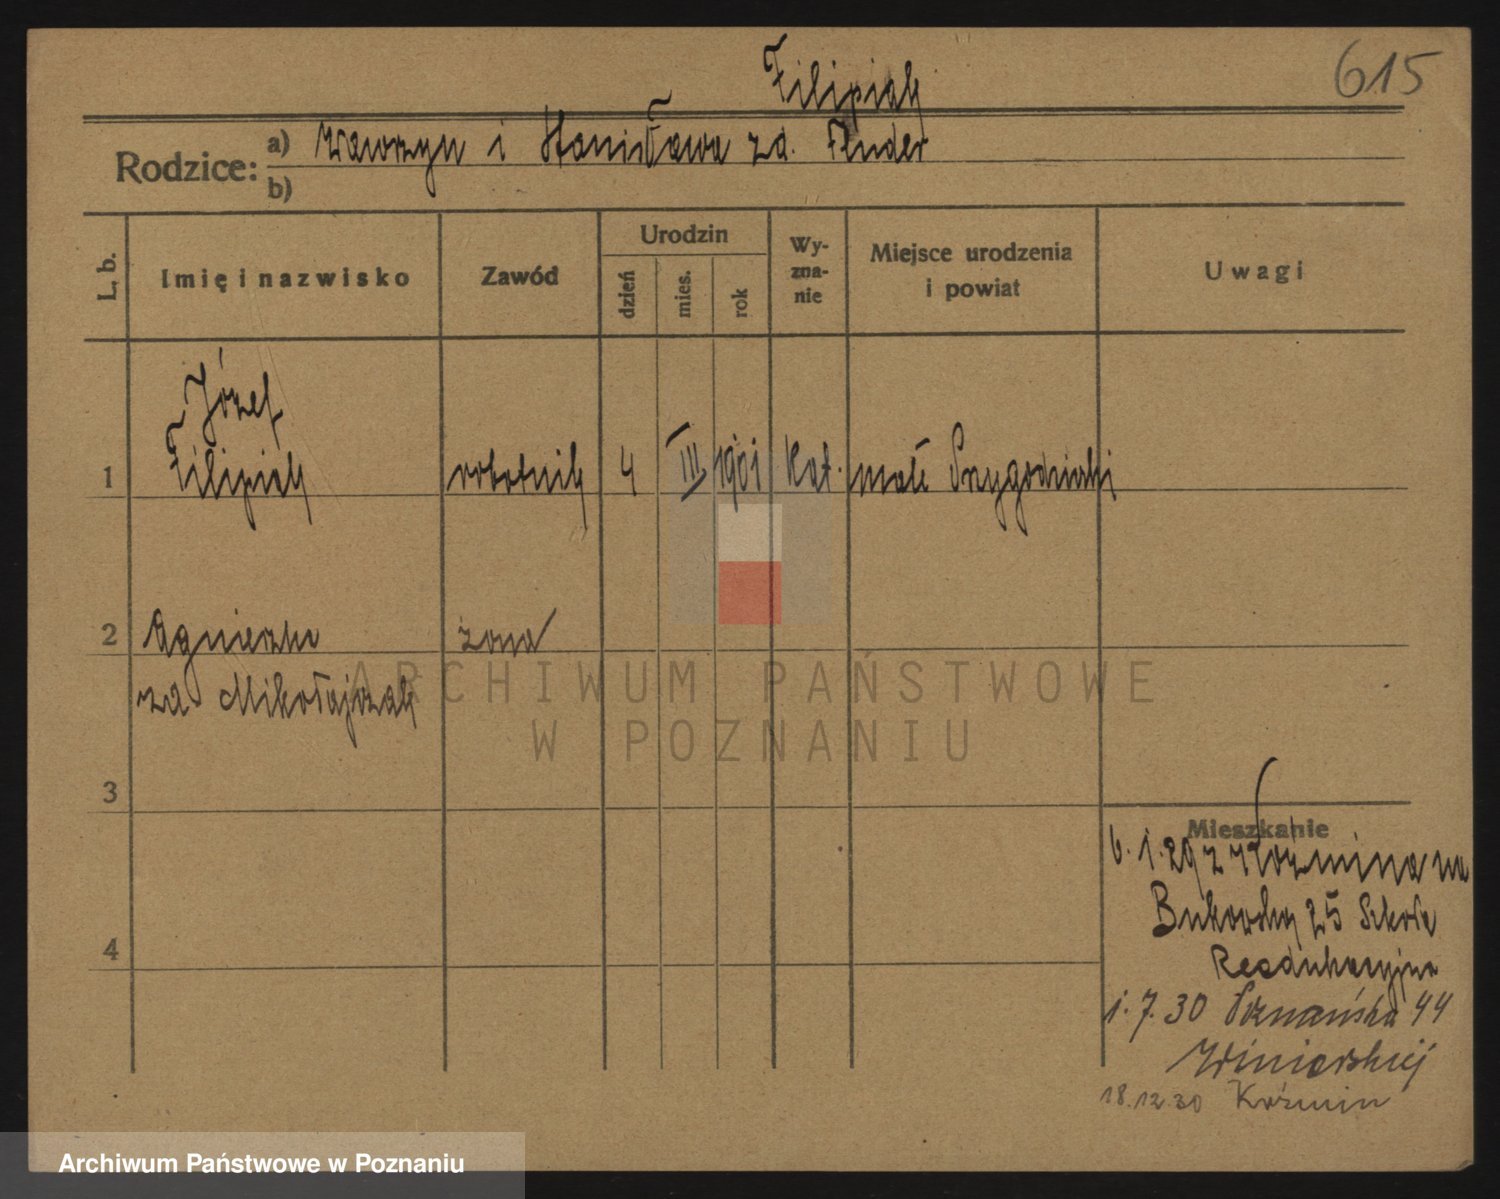 615
Filipiak
Rodzice: a) Wawrzyn i Stanisława zd. Fluder
b)
L. b.
Imię i nazwisko
Zawód
Urodzin
dzień
mies.
rok
Wy-
zna-
nie
Miejsce urodzenia
i powiat
Uwagi
Józef
1 Filipiak robotnik 4 III 1901 kat. małe Przygodziczki
2 Agnieszka żona
zd Mikołajczak
3
4
Mieszkanie
6.1.29 z Koźmina na
Bukowską 25 Szkoła
Reedukacyjna
1.7.30 Poznańska 44
Winiarskiej
18.12.30 Koźmin
ARCHIWUM PAŃSTWOWE
W POZNANIU
Archiwum Państwowe w Poznaniu